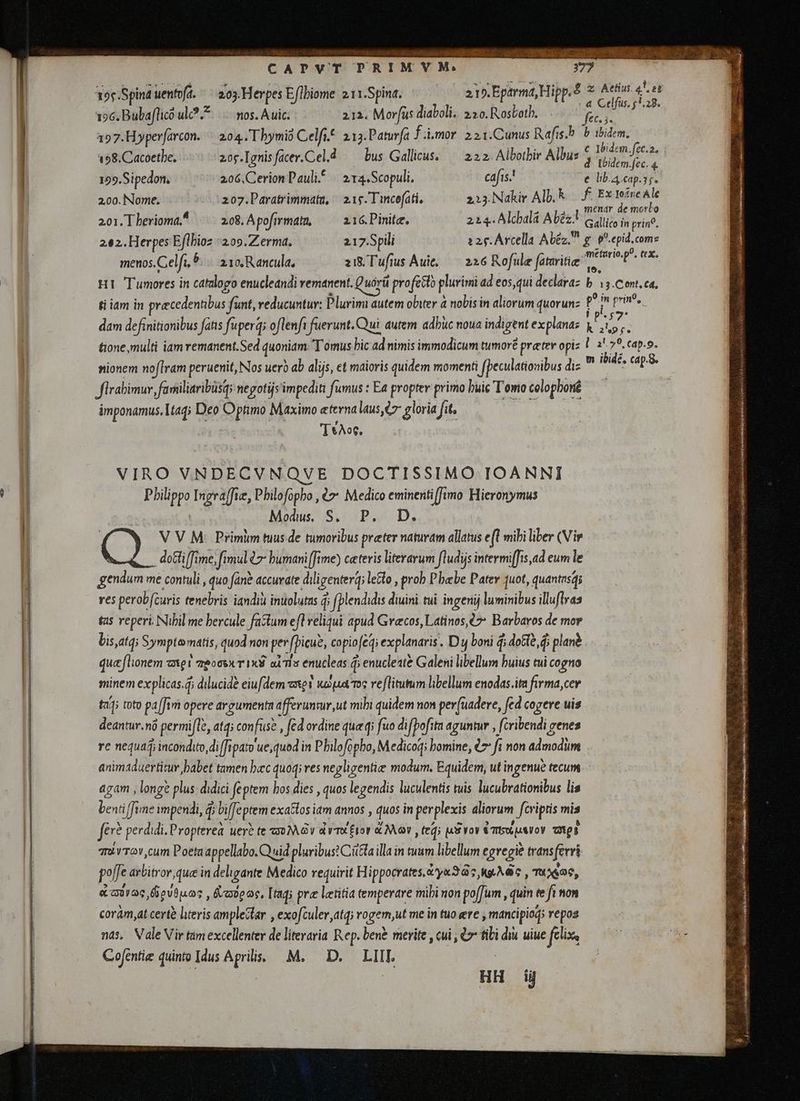 CAPVT PRIMVM. 377
195.Spina uentosa. 203.Herpes Esthiome 211.Spina. 219.Eparma, Hipp.g z Aetius. 4¹. et
196.Bubasticó ulcº.z nos. Auic. 212. Morsus diaboli. 220.Rosboth. a Celsus. 5¹.28. sec.3.
197.Hypersarcon. 204.Thymió Celsi.e 213.Patursa f .i.mor 221.Cunus Rasis.h b ibidem.
198.Cacoethe. 205.Ignis sacer.Cel.d bus Gallicus. 222. Albothir Albuz c Ibidem.sec.2. d Ibidem.sec. 4.
199.Sipedon. 206.Cerion Pauli.e 214.Scopuli. casis.i e lib.4.cap.35.
200.Nome. 207.Paratrimmata, 215.Tincosati. 223.Nakir Alb.k f Ex Ioāne Ale
201.Therioma.a 208.Apofirmata, 216.Pinitæ. 224.Alchalá Abéz.l menar de morbo Gallico in prinº.
202.Herpes Esthioz 209.Zerma. 217.Spili 225.Arcella Abéz.m g 6º.epid.com:
menos.Celsi,b 210.Rancula. 218.Tusius Auic. 226 Rosulæ fataritiæ métario.pº. tex. 19.
HI Tumores in catalogo enucleandi remanent. Quorū profectò plurimi ad eos,qui declaraz h 13.Cont.ca.
ti iam in præcedentibus sunt, reducuntur: Plurimi autem obiter à nobis in aliorum quorunz pº in prinº.
dam definitionibus satis superq; ostensi fuerunt. Qui autem adhuc noua indigent explanaz i p¹.57. k 2¹.95.
tione,multi iam remanent.Sed quoniam Tomus hic ad nimis immodicum tumorē præter opiz l 2¹ 7º,cap.9.
nionem nostram peruenit, Nos uerò ab alijs, et maioris quidem momenti speculationibus diz m ibidē, cap.8.
strahimur,familiaribúsq; negotijs impediti sumus : Ea propter primo huic Tomo colophonē
imponamus. Itaq; Deo Optimo Maximo æterna laus,&amp; gloria sit.
Τέλος.
VIRO VNDECVNQVE DOCTISSIMO IOANNI
Philippo Ingrassiæ, Philosopho, & Medico eminentissimo Hieronymus
Modius. S. P. D.
QVVM Primùm tuus de tumoribus præter naturam allatus est mihi liber (Vir
doctissime,simul & humanissime) cæteris literarum studijs intermissis,ad eum le
gendum me contuli , quo sanè accurate diligenterq; lecto , proh Phœbe Pater quot, quantasq;
res perobscuris tenebris iandiù inuolutas q̃ splendidis diuini tui ingenij luminibus illustras
tas reperi. Nihil me hercule factum est reliqui apud Græcos,Latinos,& Barbaros de mor
bis,atq; Symptomatis, quod non perspicuè, copioseq; explanaris . Dij boni q̃ doctè,q̃ planè
quæstionem περὶ προσεκτικῆ αἰτίς enucleas q̃ enucleatè Galeni libellum huius tui cogno
minem explicas.q̃ dilucidè eiusdem περὶ κώματος restitutum libellum enodas.ita firma,cer
taq; toto passim opere argumenta afferuntur,ut mihi quidem non persuadere, sed cogere uiz
deantur.nō permistè, atq; confusè , sed ordine quæq; suo disposita aguntur , scribendi genez
re nequaq̃ incondito,dissipato'ue,quod in Philosopho, Medicoq; homine, & si non admodùm
animaduertitur,habet tamen hæc quoq; res negligentiæ modum. Equidem, ut ingenuè tecum
agam , longè plus didici septem hos dies , quos legendis luculentis tuis lucubrationibus liz
bentissime impendi, q̃ bisseptem exactos iam annos , quos in perplexis aliorum scriptis miz
serè perdidi.Propterea uerò te πολλῶν ἀντάξιον ἄλλων , teq; μοῦνον ἐπιστάμενον περὶ
πάντων,cum Poeta appellabo. Quid pluribus? Cūcta illa in tuum libellum egregiè transferri
posse arbitror,quæ in deligante Medico requirit Hippocrates,ἀγαθῶς,καλῶς , ταχέως,
ἀπόνως,εὐρύθμως , εὐπόρως. Itaq; præ lætitia temperare mihi non possum , quin te si non
coràm,at certè literis amplectar , exosculer,atq; rogem,ut me in tuo ære , mancipioq; repoz
nas. Vale Vir tam excellenter de literaria Rep. benè merite , cui , & tibi diu uiue felix,
Cosentiæ quinto Idus Aprilis. M. D. LIII.
HH iij